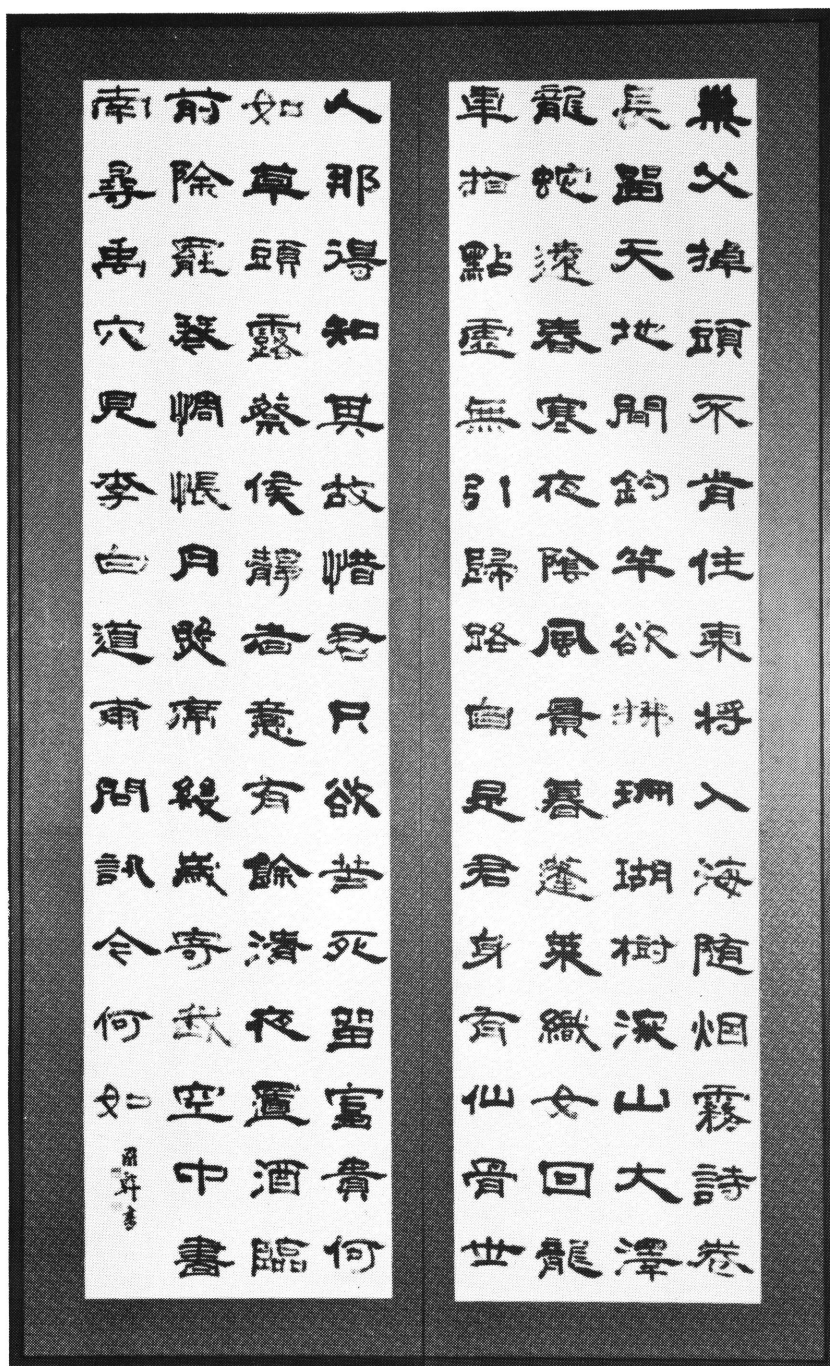 巢父掉頭不肯住東将入海随烟霧詩卷
長留天地間釣竿欲拂珊瑚樹深山大澤
龍蛇遠春寒夜陰風景暮蓬萊織女回龍
車指點虛無引歸路自是君身有仙骨世
人那得知其故惜君只欲苦死留富貴何
如草頭露蔡侯靜者意有餘清夜置酒臨
前除罷琴惆悵月照席幾歲寄我空中書
南尋禹穴見李白道甫問訊今何如
軒書